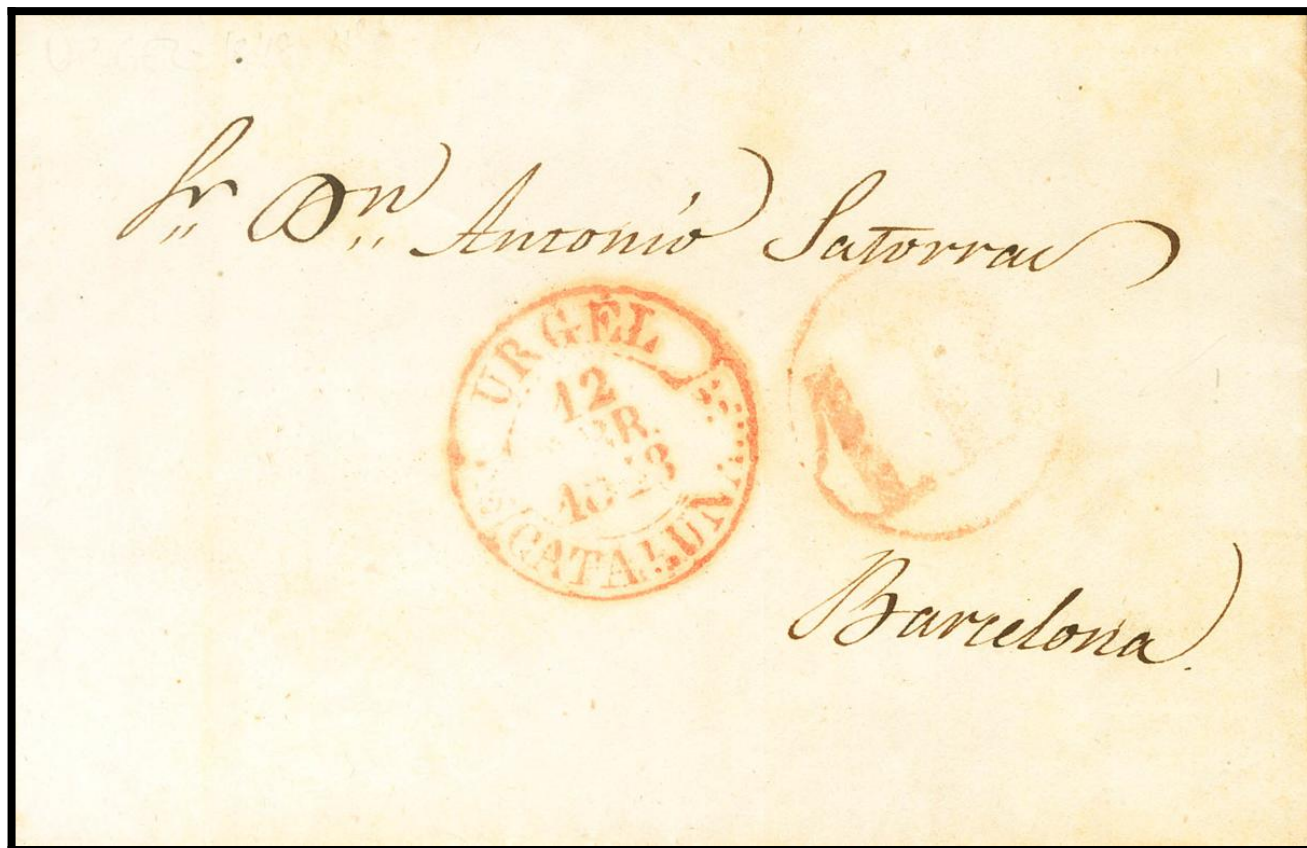 Sr. Dn. Antonio Satorras
URGEL
12
1848
CATALUÑA
Barcelona